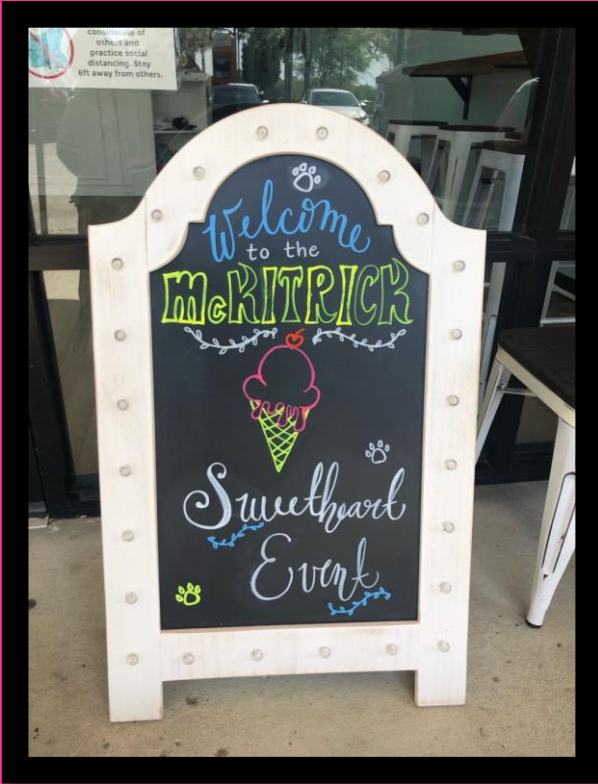 considerate of
others and
practice social
distancing. Stay
6ft away from others.
Welcome
to the
McKITRICK
Sweetheart
Event